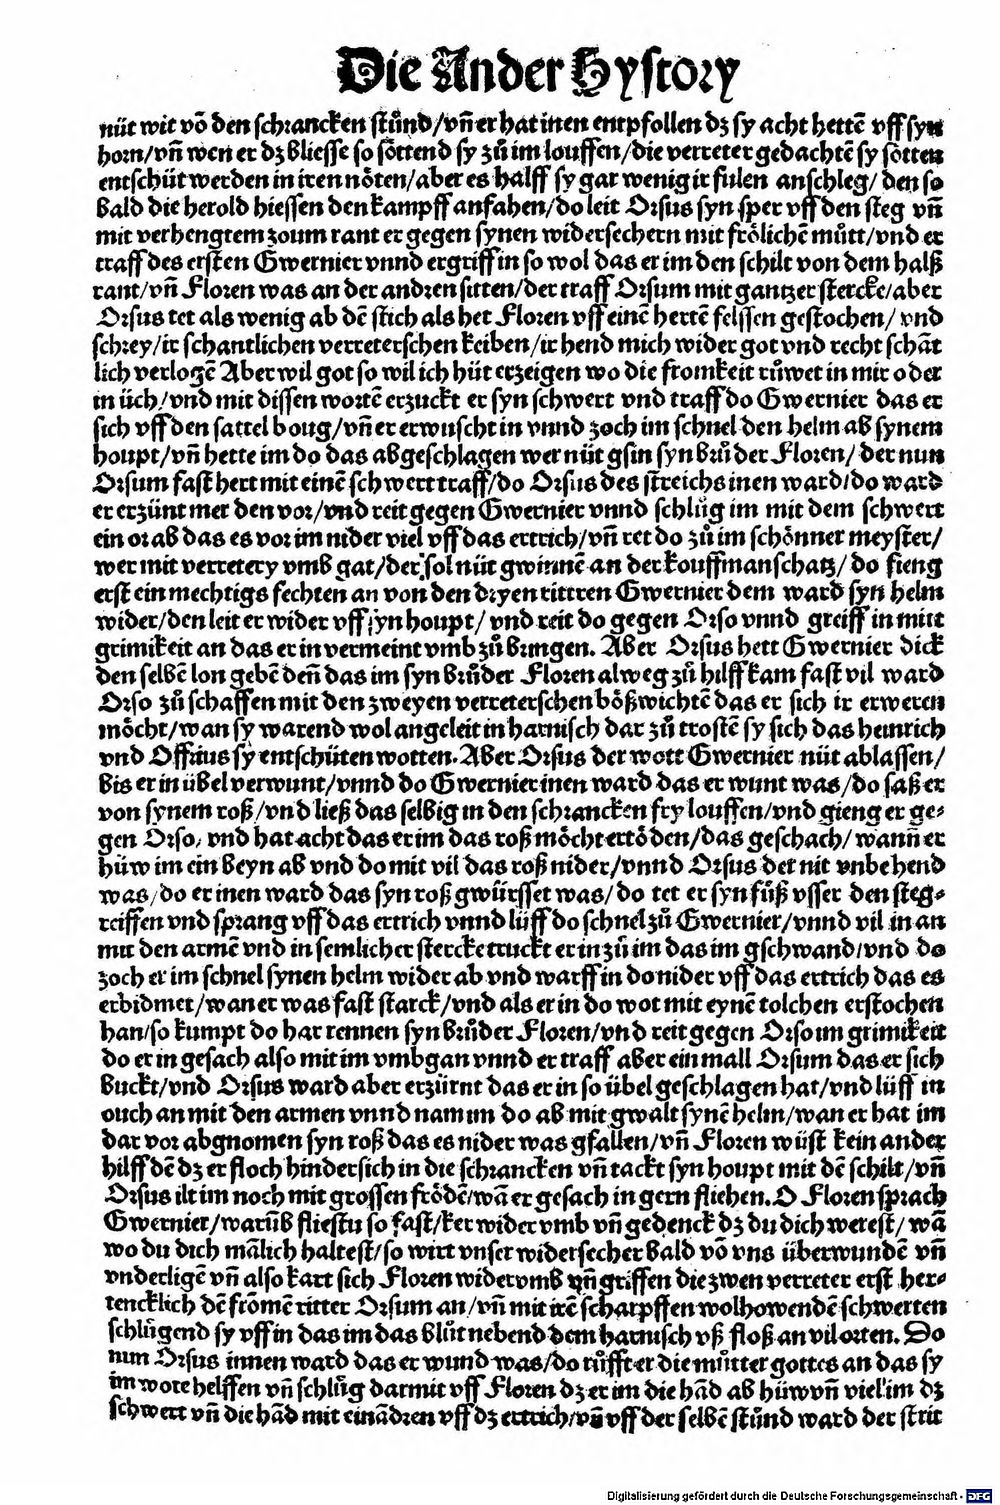 Die Ander Hystory
nüt wit võ den schrancken stůnd/vñ er hat inen entpfollen dz sy acht hettẽ vff syn
horn/vñ wen er dz bliesse so söttend sy zů im louffen/die verreter gedachtẽ sy sötten
entschüt werden in iren nöten/aber es halff sy gar wenig ir fulen anschleg/ den so
bald die herold hiessen den kampff anfahen/do leit Orsus syn sper vff den steg vñ
mit verhengtem zoum rant er gegen synen widersechern mit frölichẽ můtt/vnd er
traff des ersten Gwernier vnnd ergriff in so wol das er im den schilt von dem halß
rant/vñ Floren was an der andren sitten/der traff Orsum mit gantzer stercke/aber
Orsus tet als wenig ab dẽ stich als het Floren vff einẽ hertẽ felssen gestochen/ vnd
schrey/ir schantlichen verreterschen keiben/ir hend mich wider got vnd recht schãt
lich verlogẽ Aber wil got so wil ich hüt erzeigen wo die fromkeit růwet in mir oder
in üch/vnd mit dissen wortẽ erzuckt er syn schwert vnd traff do Gwernier das er
sich vff den sattel boug/vñ er erwuscht in vnnd zoch im schnel den helm ab synem
houpt/vñ hette im do das abgeschlagen wer nüt gsin syn brůder Floren/ der nun
Orsum fast hert mit einẽ schwert traff/do Orsus des streichs inen ward/do ward
er erzünt mer den vor/vnd reit gegen Gwernier vnnd schlůg im mit dem schwert
ein or ab das es vor im nider viel vff das ertrich/vñ ret do zů im schönner meyster/
wer mit verretery vmb gat/der sol nüt gwinnẽ an der kouffmanschatz/ do fieng
erst ein mechtigs fechten an von den dryen rittren Gwernier dem ward syn helm
wider/den leit er wider vff syn houpt/ vnd reit do gegen Orso vnnd greiff in mitt
grimikeit an das er in vermeint vmb zů bringen. Aber Orsus hett Gwernier dick
den selbẽ lon gebẽ deñ das im syn brůder Floren alweg zů hilff kam fast vil ward
Orso zů schaffen mit den zweyen verreterschen bößwichtẽ das er sich ir erweren
möcht/wan sy warend wol angeleit in harnisch dar zů trostẽ sy sich das heinrich
vnd Offrius sy entschüten wotten. Aber Orsus der wott Gwernier nüt ablassen/
bis er in übel verwunt/vnnd do Gwernier inen ward das er wunt was/do saß er
von synem roß/vnd ließ das selbig in den schrancken fry louffen/vnd gieng er ge⸗
gen Orso, vnd hat acht das er im das roß möcht ertöden/das geschach/ wann er
hüw im ein beyn ab vnd do mit vil das roß nider/vnnd Orsus det nit vnbehend
was/do er inen ward das syn roß gwürsset was/do tet er syn fůß vsser den steg⸗
reiffen vnd sprang vff das ertrich vnnd lüff do schnel zů Gwernier/vnnd vil in an
mit den armẽ vnd in semlicher stercke truckt er in zů im das im gschwand/vnd do
zoch er im schnel synen helm wider ab vnd warff in do nider vff das ertrich das es
erbidmet/wan er was fast starck/vnd als er in do wot mit eynẽ tolchen erstochen
han/so kumpt do har rennen syn brůder Floren/vnd reit gegen Orso im grimikeit
do er in gesach also mit im vmbgan vnnd er traff aber ein mall Orsum das er sich
buckt/vnd Orsus ward aber erzürnt das er in so übel geschlagen hat/vnd lüff in
ouch an mit den armen vnnd nam im do ab mit gwalt synẽ helm/wan er hat im
dar vor abgnomen syn roß das es nider was gsallen/vñ Floren wüst kein ander
hilff dẽ dz er floch hindersich in die schrancken vñ tackt syn houpt mit dẽ schilt/vñ
Orsus ilt im noch mit grossen frödẽ/wã er gesach in gern fliehen. O Floren sprach
Gwernier/warũb fliestu so fast/ker wider vmb vñ gedenck dz du dich werest/ wã
wo du dich mãlich haltest/so wirt vnser widersecher bald võ vns überwundẽ vñ
vnderligẽ vñ also kart sich Floren wider vmb vñ griffen die zwen verreter erst her⸗
tencklich dẽ frõmẽ ritter Orsum an/vñ mit irẽ scharpffen wolhowendẽ schwerten
schlůgend sy vff in das im das blůt nebend dem harnisch vß floß an vil orten. Do
nun Orsus innen ward das er wund was/do růfft er die můtter gottes an das sy
im wote helffen vñ schlůg darmit vff Floren dz er im die hãd ab hüw vñ viel im dz
schwert vñ die hãd mit einãdren vff dz ertrich/vñ vff der selbẽ stůnd ward der strit
Digitalisierung gefördert durch die Deutsche Forschungsgemeinschaft - DFG